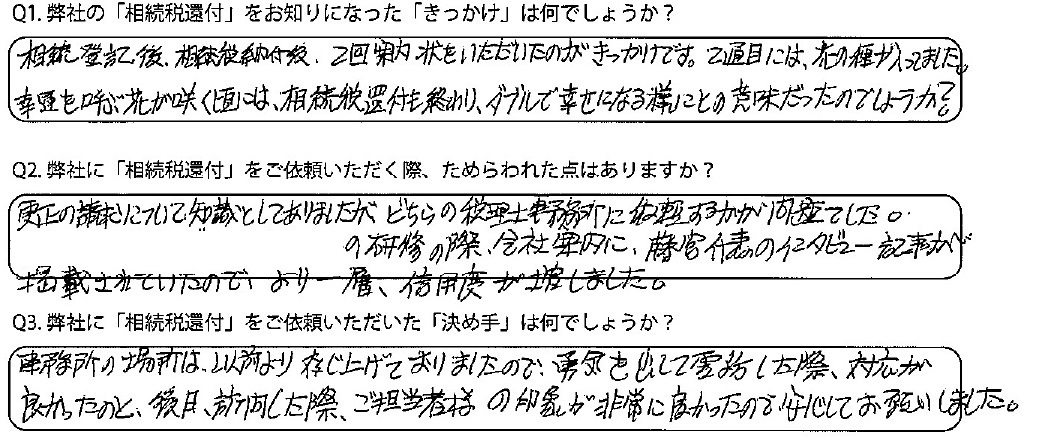 Q1. 弊社の「相続税還付」をお知りになった「きっかけ」は何でしょうか?
相続登記後、相続税納付後、2回案内状をいただいたのがきっかけです。2通目には、花の種が入ってました。
幸運を呼ぶ花が咲く頃には、相続税還付も終わり、ダブルで幸せになる様にとの意味だったのでしょうか?
Q2. 弊社に「相続税還付」をご依頼いただく際、ためらわれた点はありますか?
更正の請求について知識としてありましたが、どちらの税理士事務所に依頼するかが問題でした。
の研修の際、会社案内に、藤宮代表のインタビュー記事が
掲載されていたので、より一層、信用度が増しました。
Q3. 弊社に「相続税還付」をご依頼いただいた「決め手」は何でしょうか?
事務所の場所は、以前より存じ上げておりましたので、勇気を出して電話した際、対応が
良かったのと、後日、訪問した際、ご担当者様の印象が非常に良かったので安心してお願いしました。